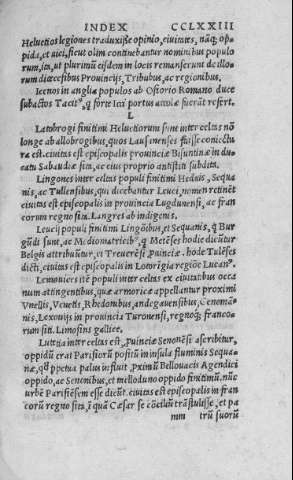 INDEX CCLXXIII
Heluetios legiones traduxisse opinio, ciuitates, nāq; op-
pida, et uici, sicut olim continebantur nominibus populo
rum, ita, ut plurimū eisdem in locis remanserunt de illo-
rum diœcesibus Prouincijs, Tribubus, ac regionibus.
Icenos in anglia populos ab Ostorio Romano duce
subactos Tacit⁹, q forte Icci portus accolæ fuerāt refert.
L
Latobrogi finitimi Heluetiorum sunt inter celtas nō
longe ab allobrogibus, quos Lausenenses fuisse coniectu
ra est. ciuitas est episcopalis prouinciæ Bisuntinæ in du-
catu Sabaudiæ sita, ac eius proprio antistiti subdita.
Lingones inter celtas populi finitimi Heduis, Sequa
nis, ac Tullensibus, qui dicebantur Leuci, nomen retinēt
ciuitas est episcopalis in prouincia Lugdunensi, ac fran
corum regno sita. Langres ab indigenis.
Leucij populi finitimi Lingōibus, et Sequanis, q Bur
gūdi sunt, ac Mediomatricib⁹, q Metēses hodie dicūtur
Belgis attribuūtur, et Treuerēsi Puinciæ. hode Tulēses
dicti, ciuitas est episcopalis in Lotorīgia regiōe Lucan⁹.
Lemouices itē populi inter celtas ex ciuitatibus ocea
num attingentibus, quæ armoricæ appellantur proximi
Vnellis, Venetis, Rhedonibus, andegauensibus, Cenomā-
nis, Lexouijs in prouincia Turonensi, regnoq; franco-
rum siti. Limosins gallice.
Lutetia inter celtas est, Puinciæ Senonēsi ascribitur,
oppidū erat Parisiorū positū in insula fluminis Sequa-
næ, q ppetua palus influit, pximū Bellouacis Agendicū
oppido, ac Senonibus, et melloduno oppido finitimū. nūc
urbē Parisiēsem esse dicūt. ciuitas est episcopalis in fran
corū regno sita, ī quā Cæsar se cōciliū trāstulisse, et pa
mm trū suorū